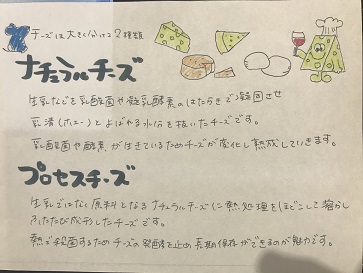 チーズは大きく分けて2種類
ナチュラルチーズ
生乳などを乳酸菌や凝乳酵素のはたらきで凝固させ
乳清(ホエー)とよばれる水分を抜いたチーズです。
乳酸菌や酵素が生きているためチーズが変化し熟成していきます。
プロセスチーズ
生乳ではなく原料となるナチュラルチーズに熱処理をほどこして溶かし
ふたたび成形したチーズです。
熱で殺菌するためチーズの発酵を止め長期保存ができるのが魅力です。